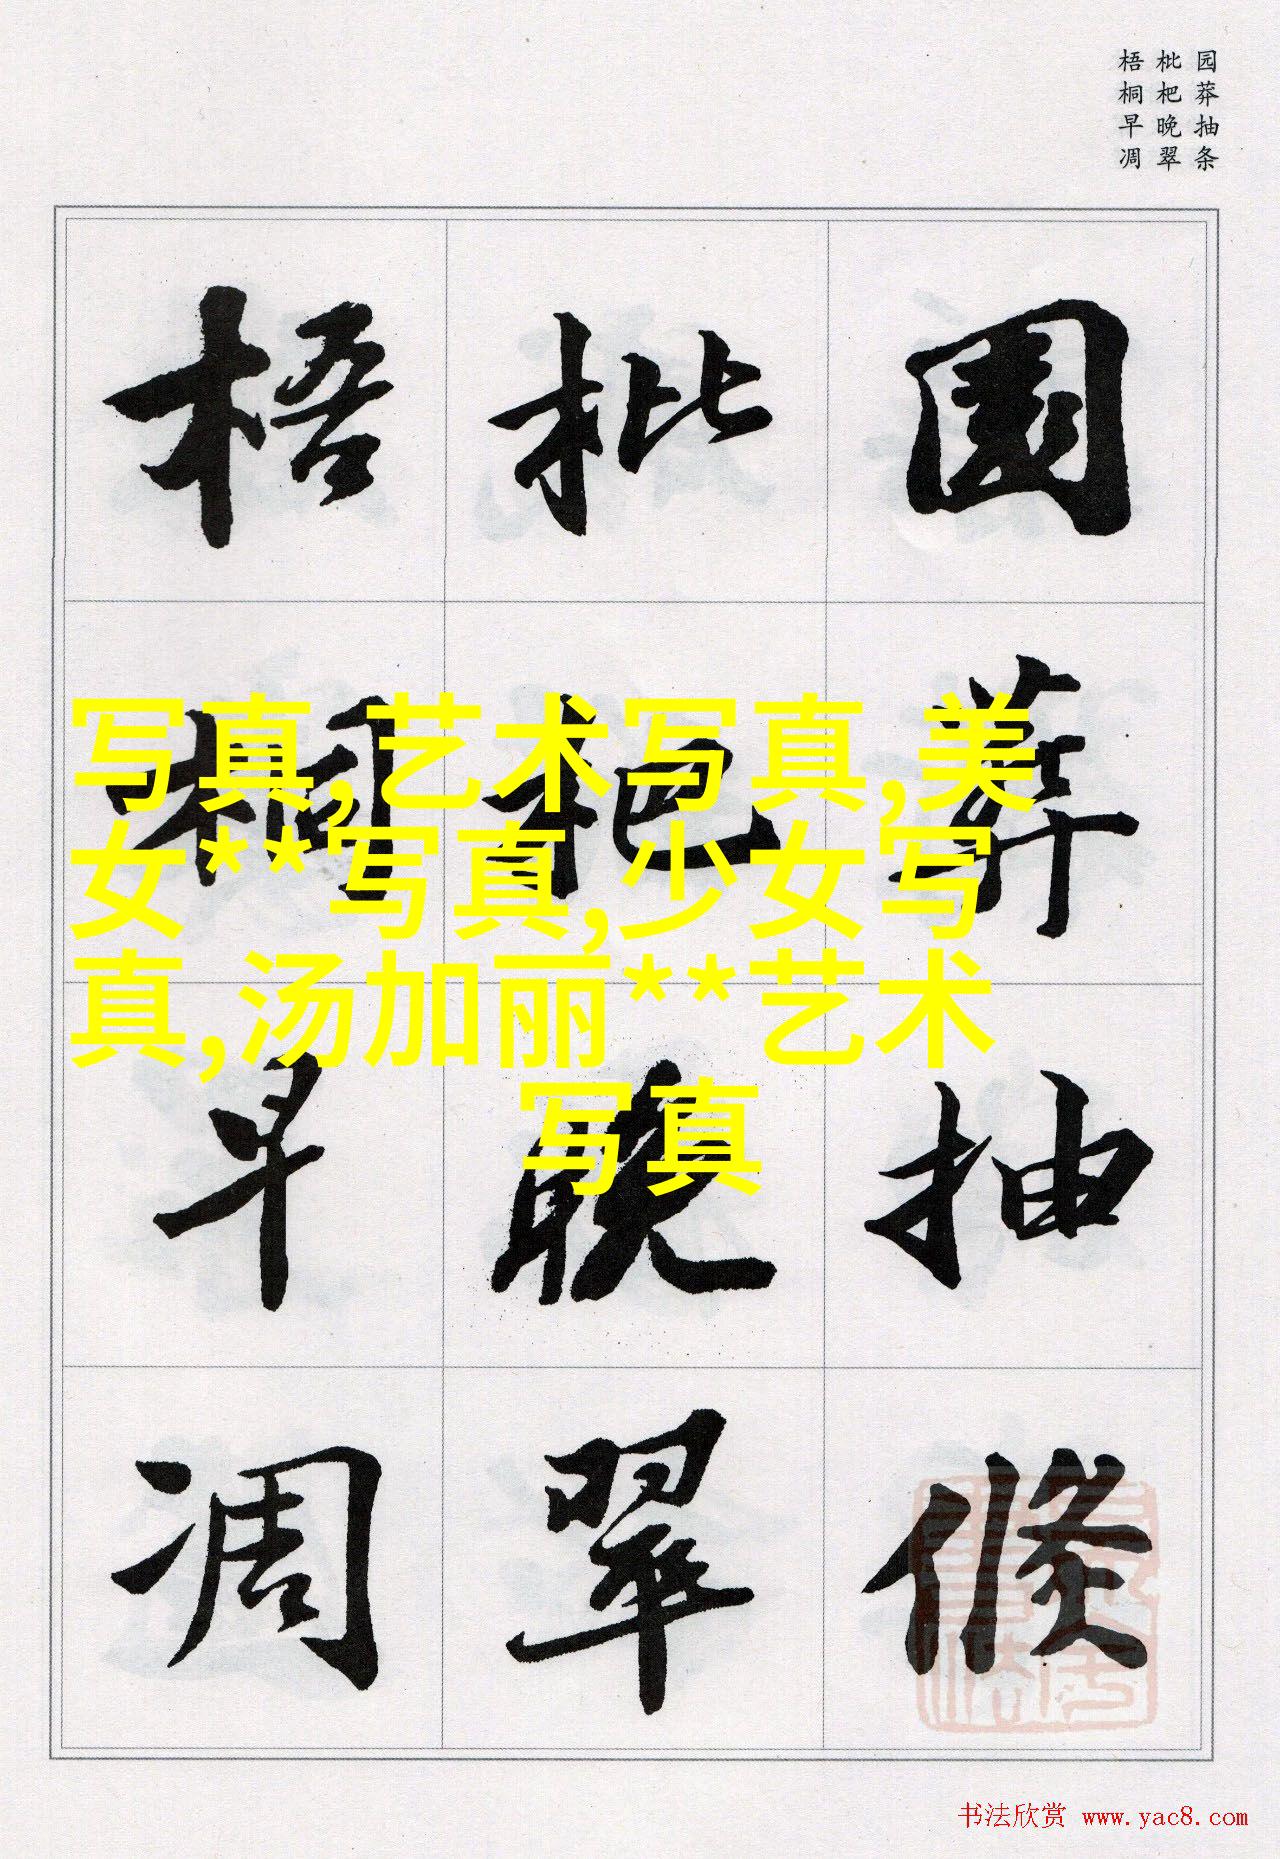 园莽抽条
枇杷晚翠
梧桐早凋
園莽抽條
枇杷晚翠
梧桐早凋
写真,艺术写真,美
女**写真,少女写
真,汤加丽**艺术
写真
书法欣赏 www.yac8.com